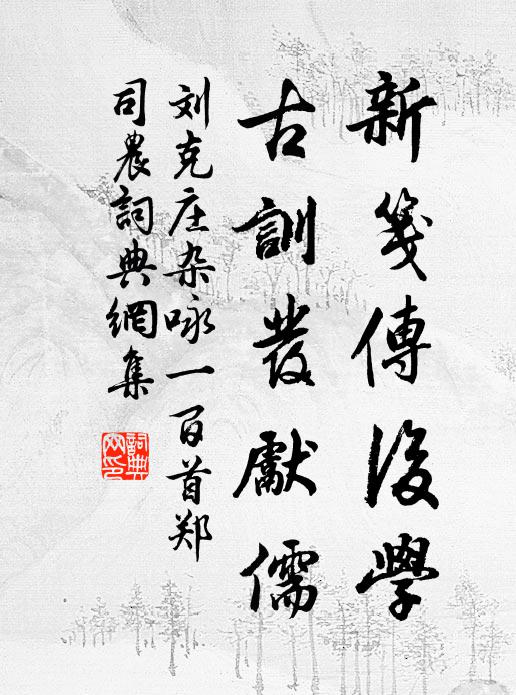 新箋傳後學
古訓發獻儒
刘克庄杂咏一百首郑
司農詞典網集
詞典网印